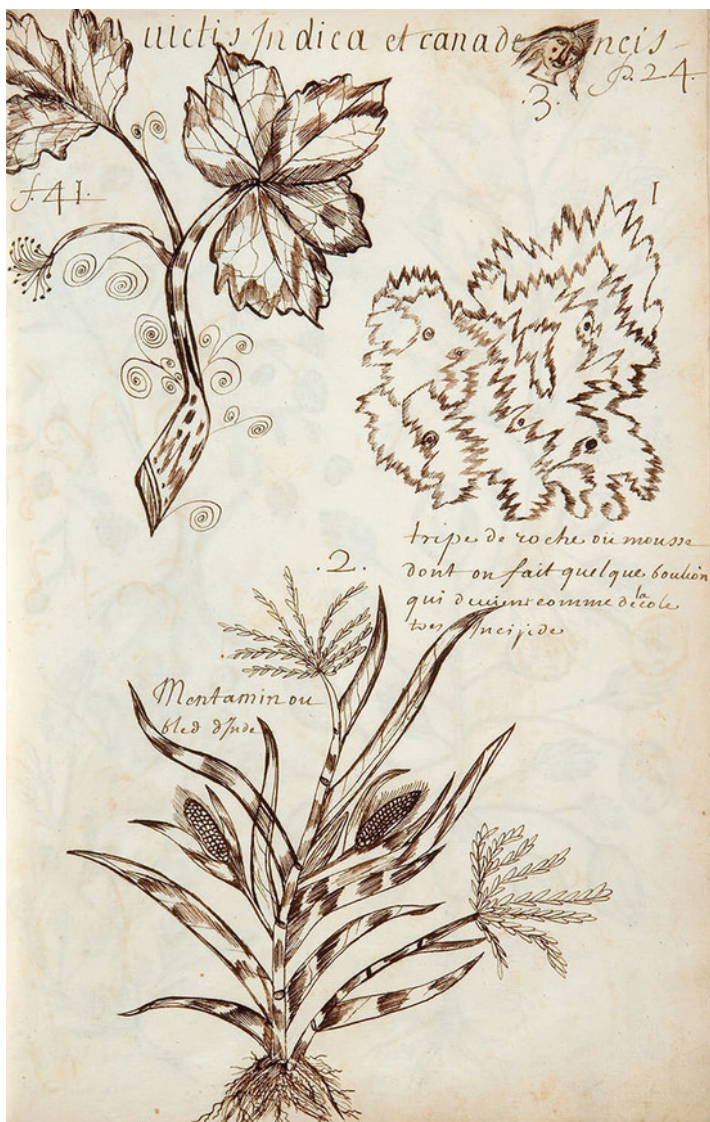 uictis Indica et canadencis
p. 24.
.3.
f. 41.
1
tripe de roche ou mousse
dont on fait quelque bouliön
qui deuient comme de la cole
tres Incipide
.2.
Mentamin ou
bled d'Inde